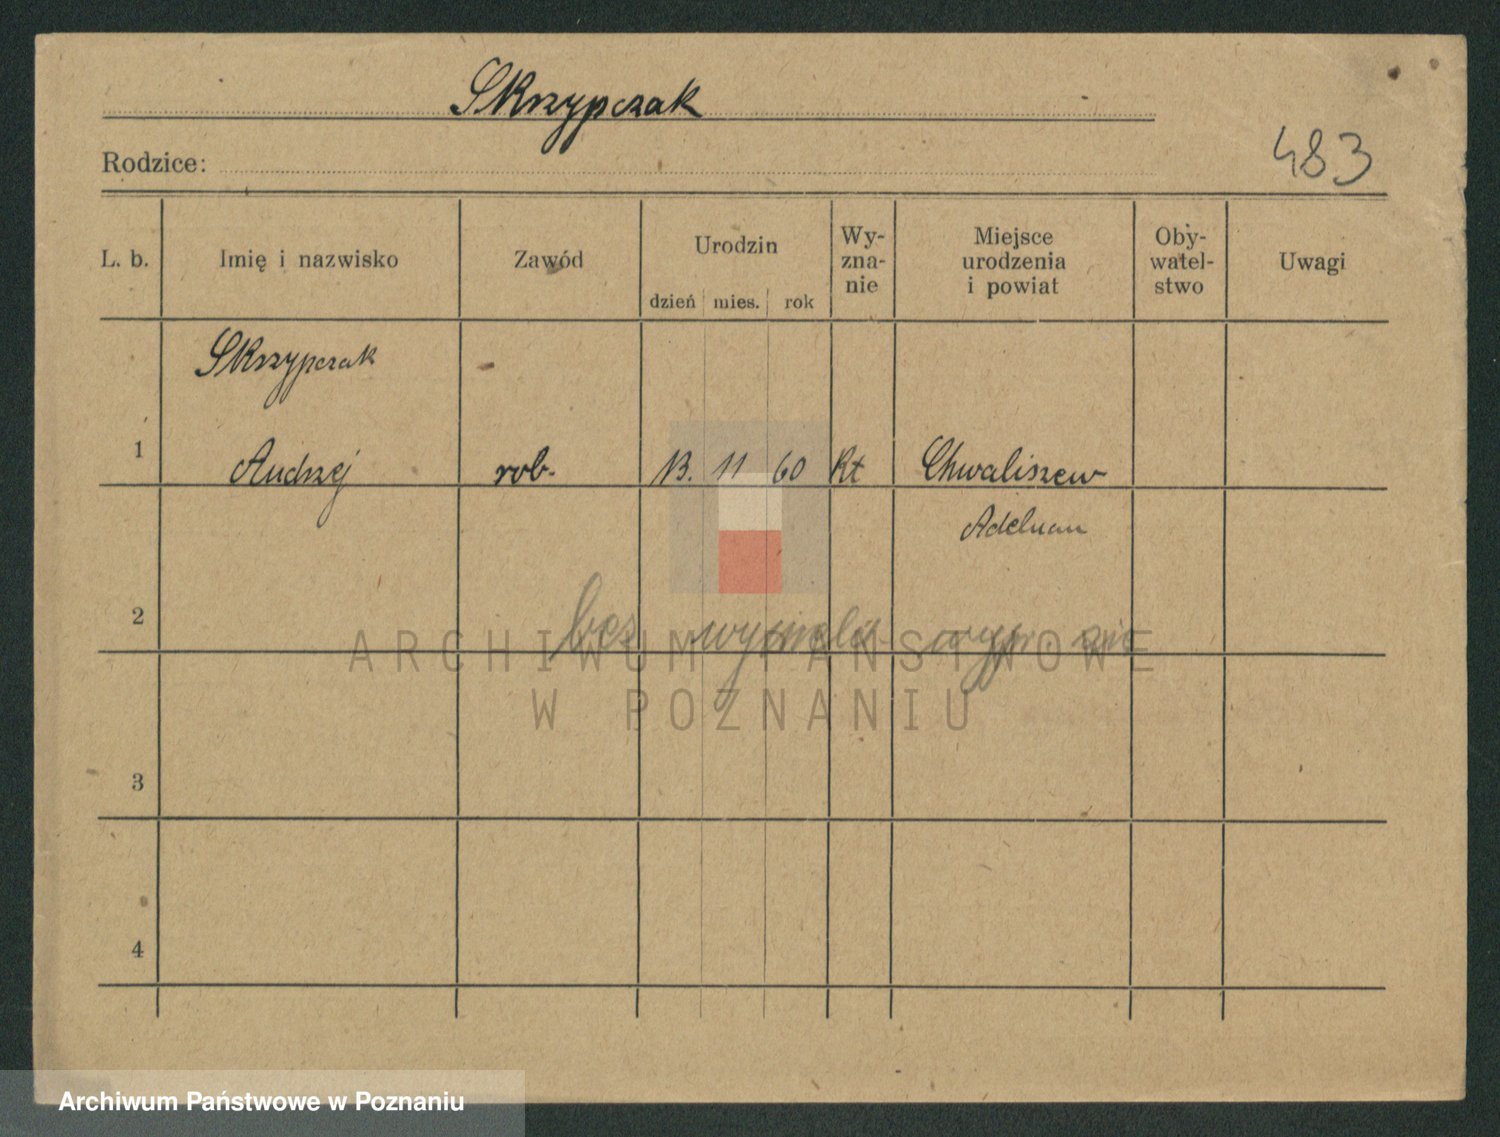 Skrzypczak
Rodzice:
483
L. b. Imię i nazwisko Zawód Urodzin dzień mies. rok Wy-zna-nie Miejsce urodzenia i powiat Oby-watel-stwo Uwagi
Skrzypczak
1 Andrzej rob. 13. 11 60 Rt Chwaliszew
Adelnau
2 bez
3
4
ARCHIWUM PAŃSTWOWE
W POZNANIU
Archiwum Państwowe w Poznaniu